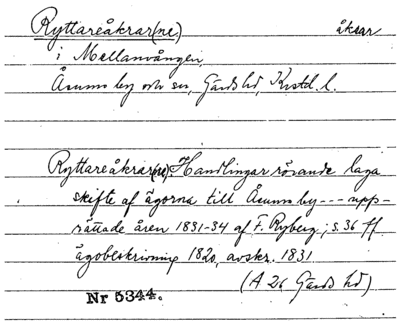 Ryttareåkrar(ne) åkrar
i Mellanvången
Åsums by och sn, Gärds hd, Krstd. l.
Ryttareåkrar(ne) Handlingar rörande laga
skifte af ägorna till Åsums by --- upp-
rättade åren 1831-34 af F. Ryberg; s. 36 ff
ägobeskrivning 1820, avskr. 1831
(A 26 Gärds hd)
Nr 5344.